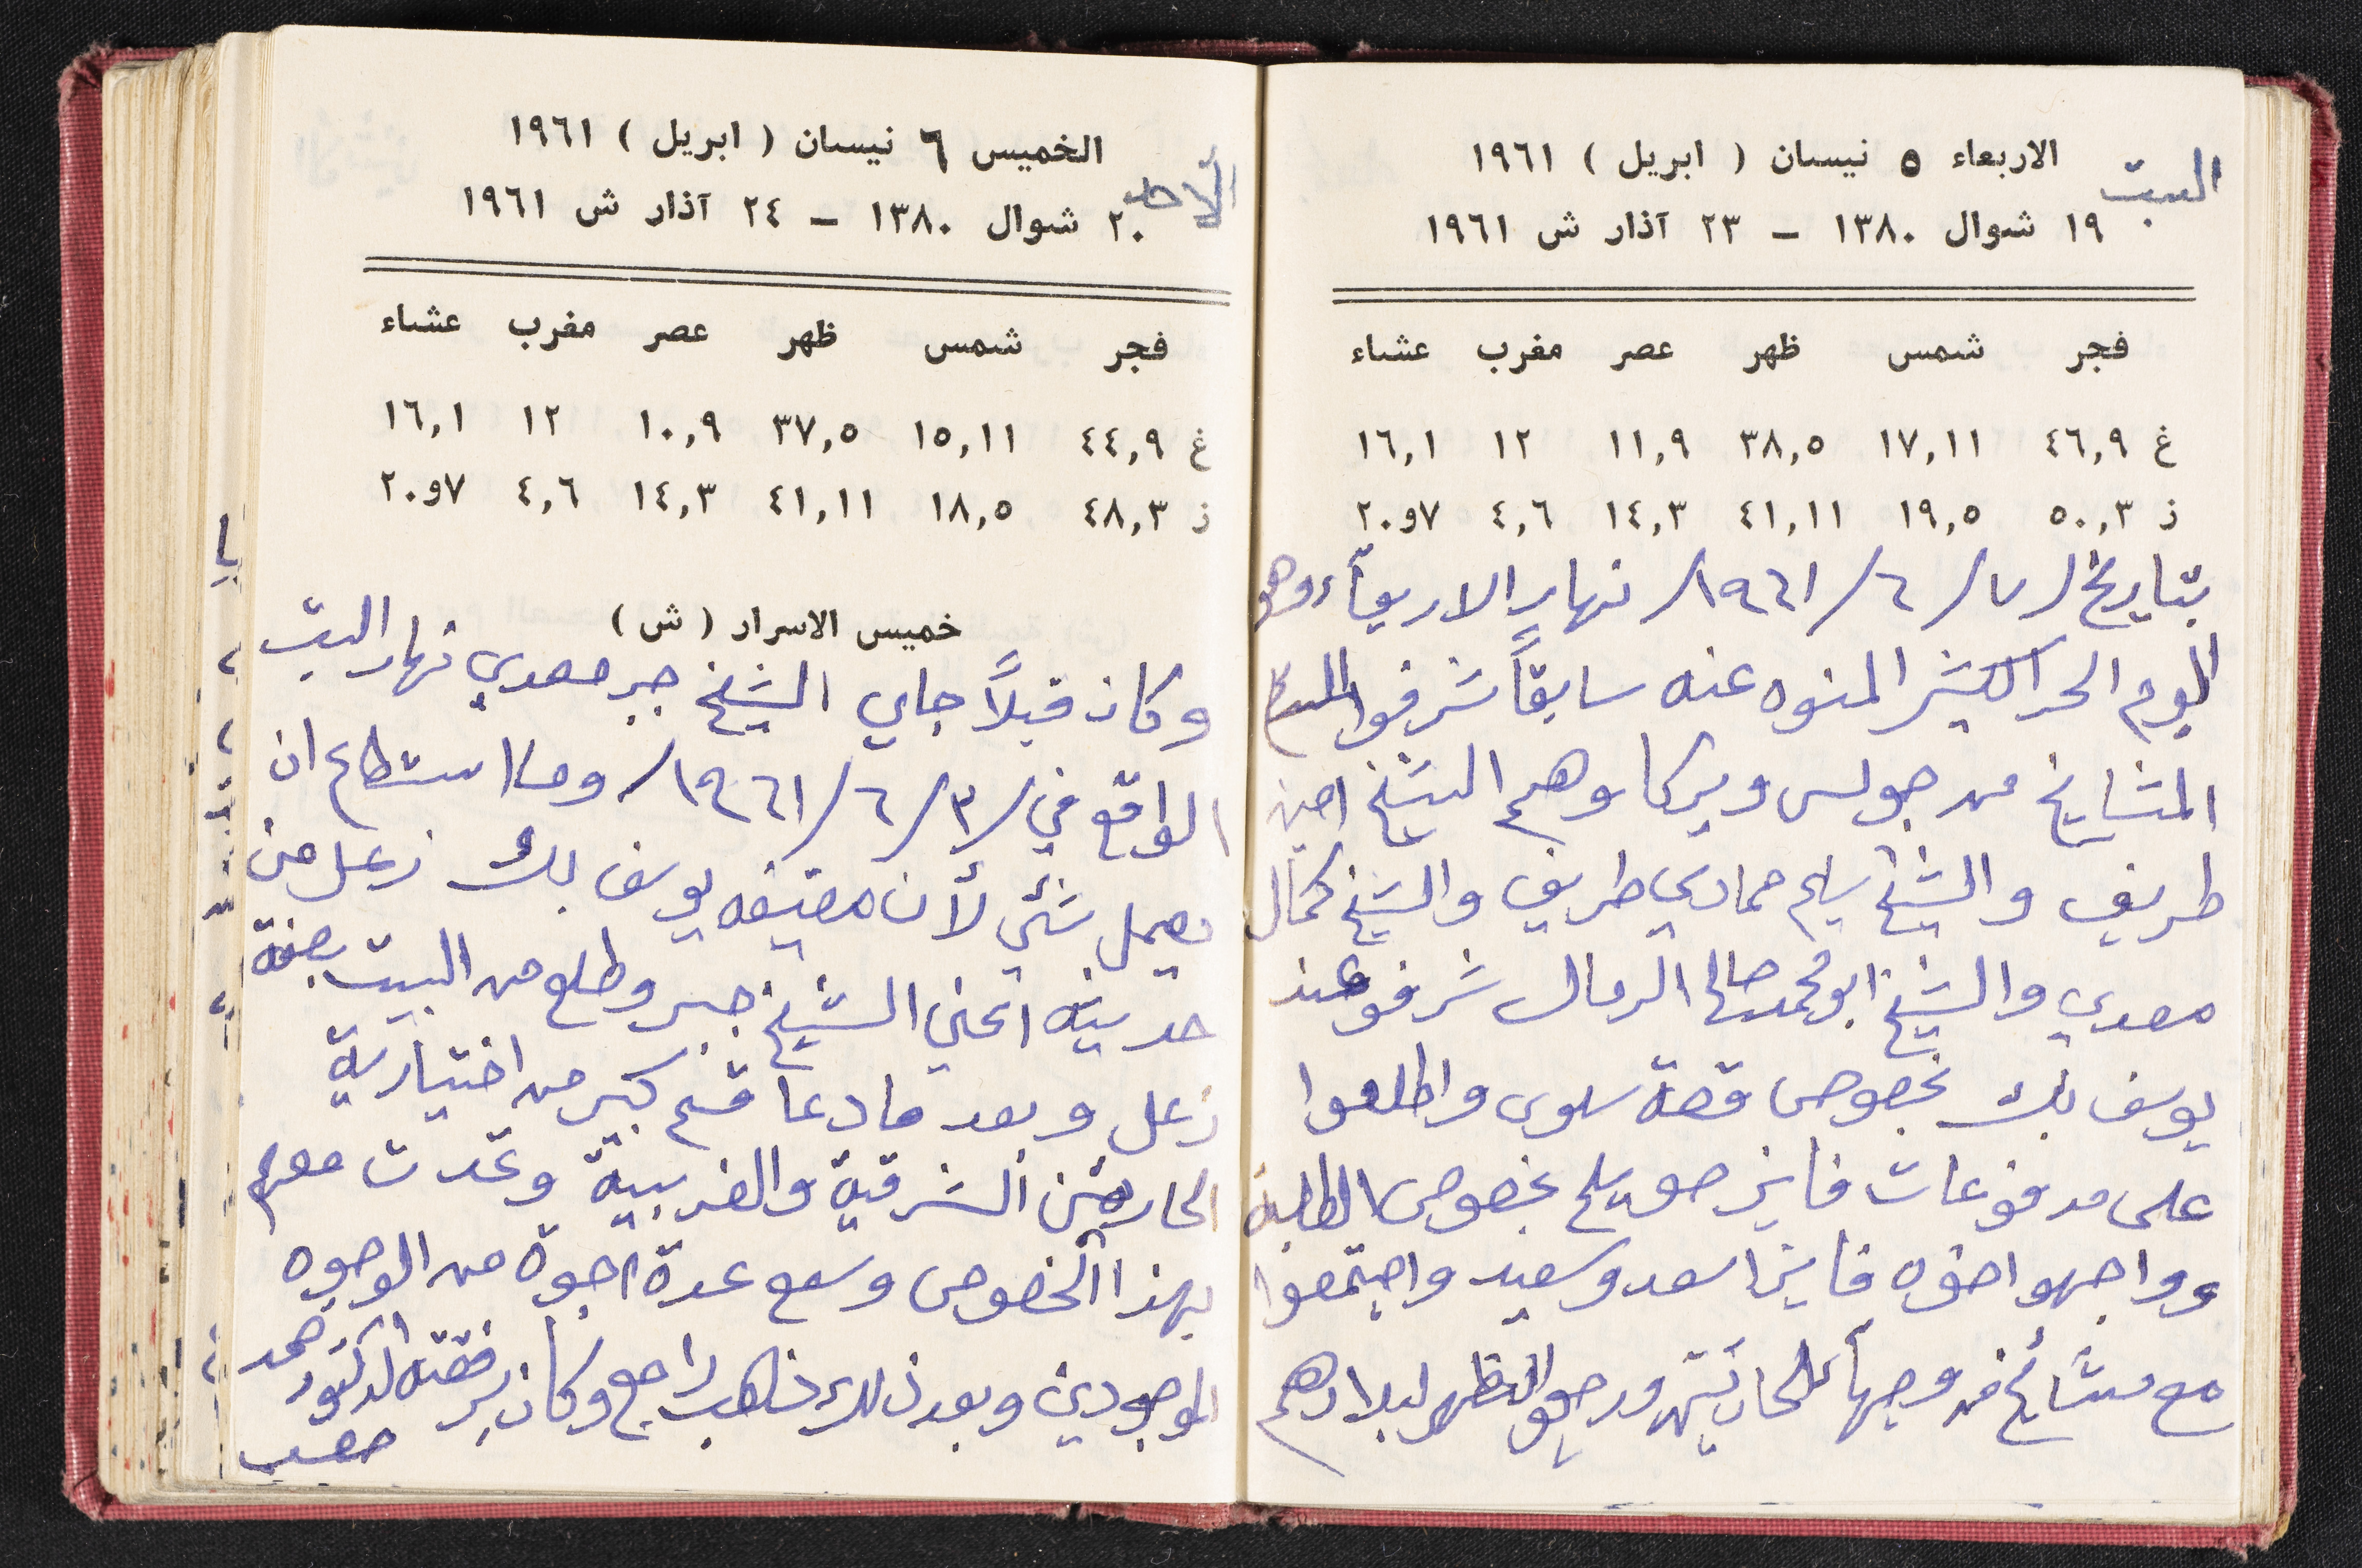 السبت
الاربعاء ٥ نيسان ( ابريل ) ١٩٦١
١٩ شوال ١٣٨٠ – ٢٣ آذار ش ١٩٦١
فجر شمس ظهر عصر مغرب عشاء
غ ٤٦,٩ ١٧,١١ ٣٨,٥ ١١,٩ ١٢ ١٦,١
ز ٥٠,٣ ١٩,٥ ٤١,١١ ١٤,٣ ٤,٦ ٧و٢٠
بتاريخ /٧/٦/١٩٦١/ نهار الاربعآء وهو
اليوم الحر الكثير المنوه عنه سابقاً شرفوا
المشايخ من جولس ويركا وهم الشيخ امين
طريف والشيخ سليم حمادي طريف والشيخ كمال
معدي والشيخ ابو محمد صالح الرمال شرفو عند
يوسف بك بخصوص قصة سلوى واطلعوا
على مدفوعات فايز صويلح بخصوص الطلبة
وواجهو اخوه فايز اسعد وسعيد واجتمعوا
مع مشائخ من وجهآ الحارتين ورجعو الظهر لبلادهم
الأحد
الخميس ٦ نيسان ( ابريل ) ١٩٦١
٢٠ شوال ١٣٨٠ – ٢٤ آذار ش ١٩٦١
فجر شمس ظهر عصر مغرب عشاء
غ ٤٤,٩ ١٥,١١ ٣٧,٥ ١٠,٩ ١٢ ١٦,١
ز ٤٨,٣ ١٨,٥ ٤١,١١ ١٤,٣ ٤,٦ ٧و٢٠
خميس الاسرار ( ش )
وكان قبلاً جاي الشيخ جبر معدي نهار السبت
الواقع في /٣/٦/١٩٦١/ وما استطاع ان
يعمل شي لأن مضيفه يوسف بك زعل من
حديثه اعني الشيخ جبر وطلع من البيت بصفة
زعل وبعد ما دعا قسم كبير من اختيارية
الحارتين الشرقية والغربية وتحدت معهم
بهذا الخصوص وسمع عدة اجوة من الوجوه
الموجودين وبعد ذلك ذهب راجع وكان برفقته الدكتور محمد
صعب